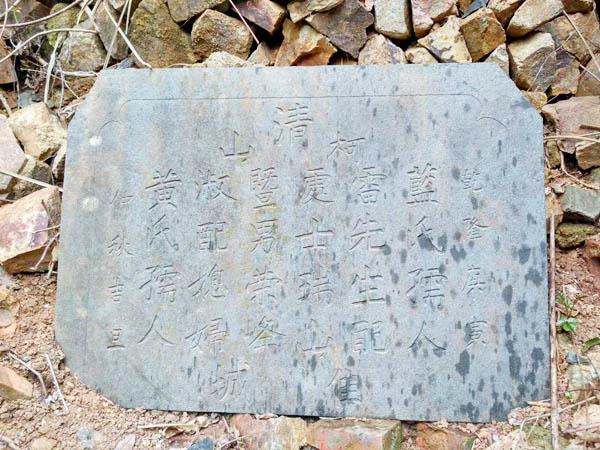 清
柯山
乾隆庚寅
藍氏孺人
雷先生配
處士瑞山
暨男荣峯
淑配媳婦
黄氏孺人
仲秋吉旦
佳城